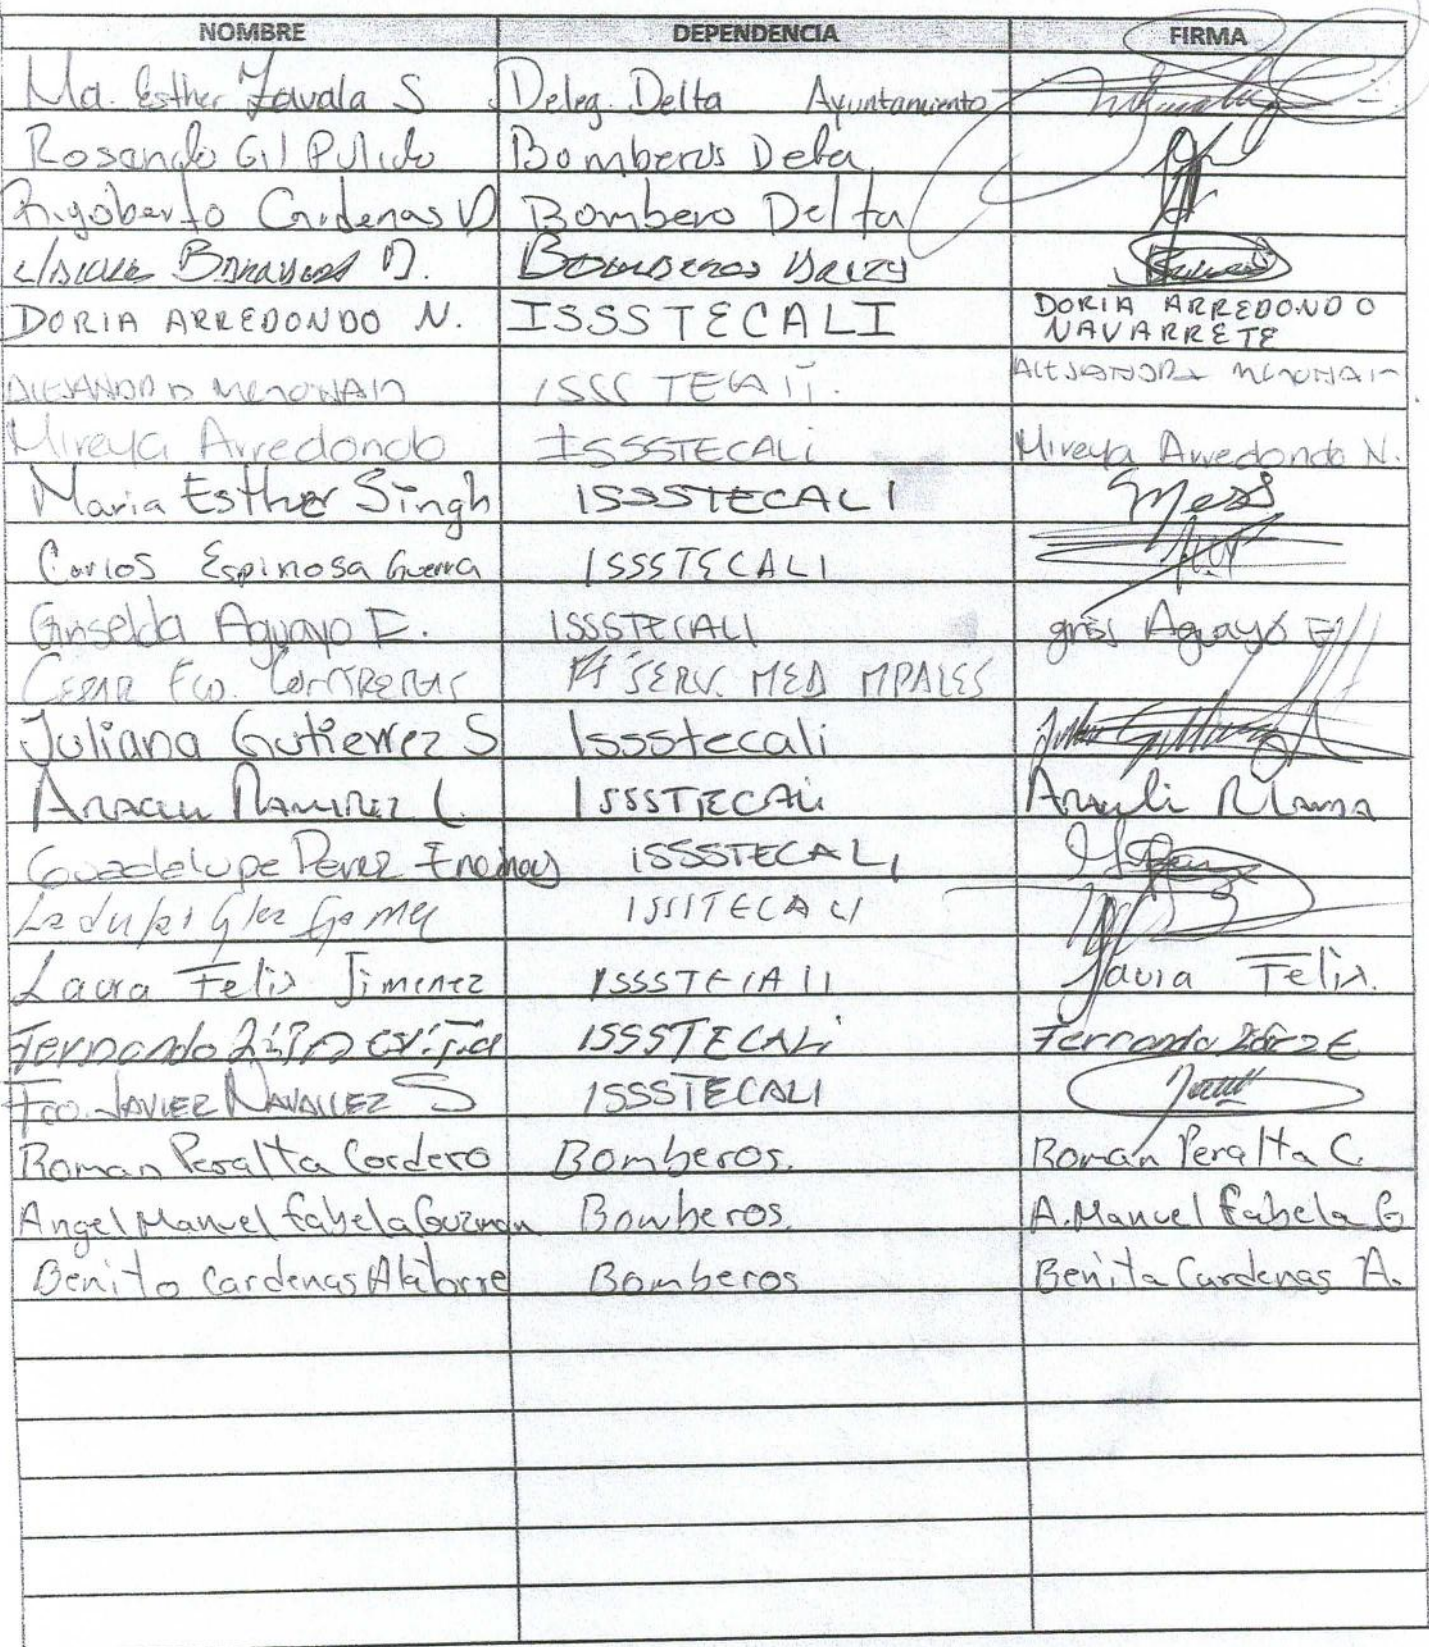 NOMBRE DEPENDENCIA FIRMA
Ma. Esther Zavala S Deleg. Delta Ayuntamiento
Rosendo Gil Pulido Bomberos Delta
Rigoberto Cardenas V Bombero Delta
D. Bomberos
DORIA ARREDONDO N. ISSSTECALI DORIA ARREDONDO
NAVARRETE
ISSSTECALI
Mireya Arredondo ISSSTECALi Mireya Arredondo N.
Maria Esther Singh ISSSTECALI
Carlos Espinosa Guerra ISSSTECALI
Griselda Aguayo E. ISSSTECALI gris Aguayo E
CESAR Fco. CONTRERAS SERV. MED MPALES
Juliana Gutierrez S Issstecali
RAMIREZ L. ISSSTECALi Araceli
Guadelupe Perez ISSSTECALI
Glez ISSSTECALI
Laura Felix Jimenez ISSSTECALI Laura Felix.
Fernando ISSSTECALi Fernando
Fco. JAVIER S ISSSTECALI
Roman Peralta Cordero Bomberos. Román Peralta C.
Angel Manuel Fabela Guzman Bomberos. A. Manuel Fabela G
Benito Cardenas Alatorre Bomberos Benito Cardenas A.